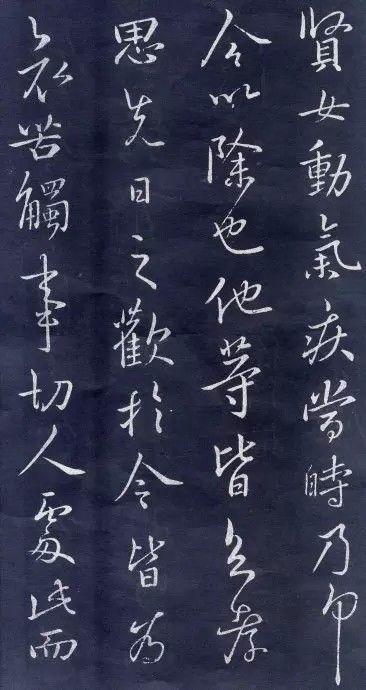 賢女動氣疾當時乃
今以除也他等皆
思先日之歡於今皆為
哀苦觸事切人處此而